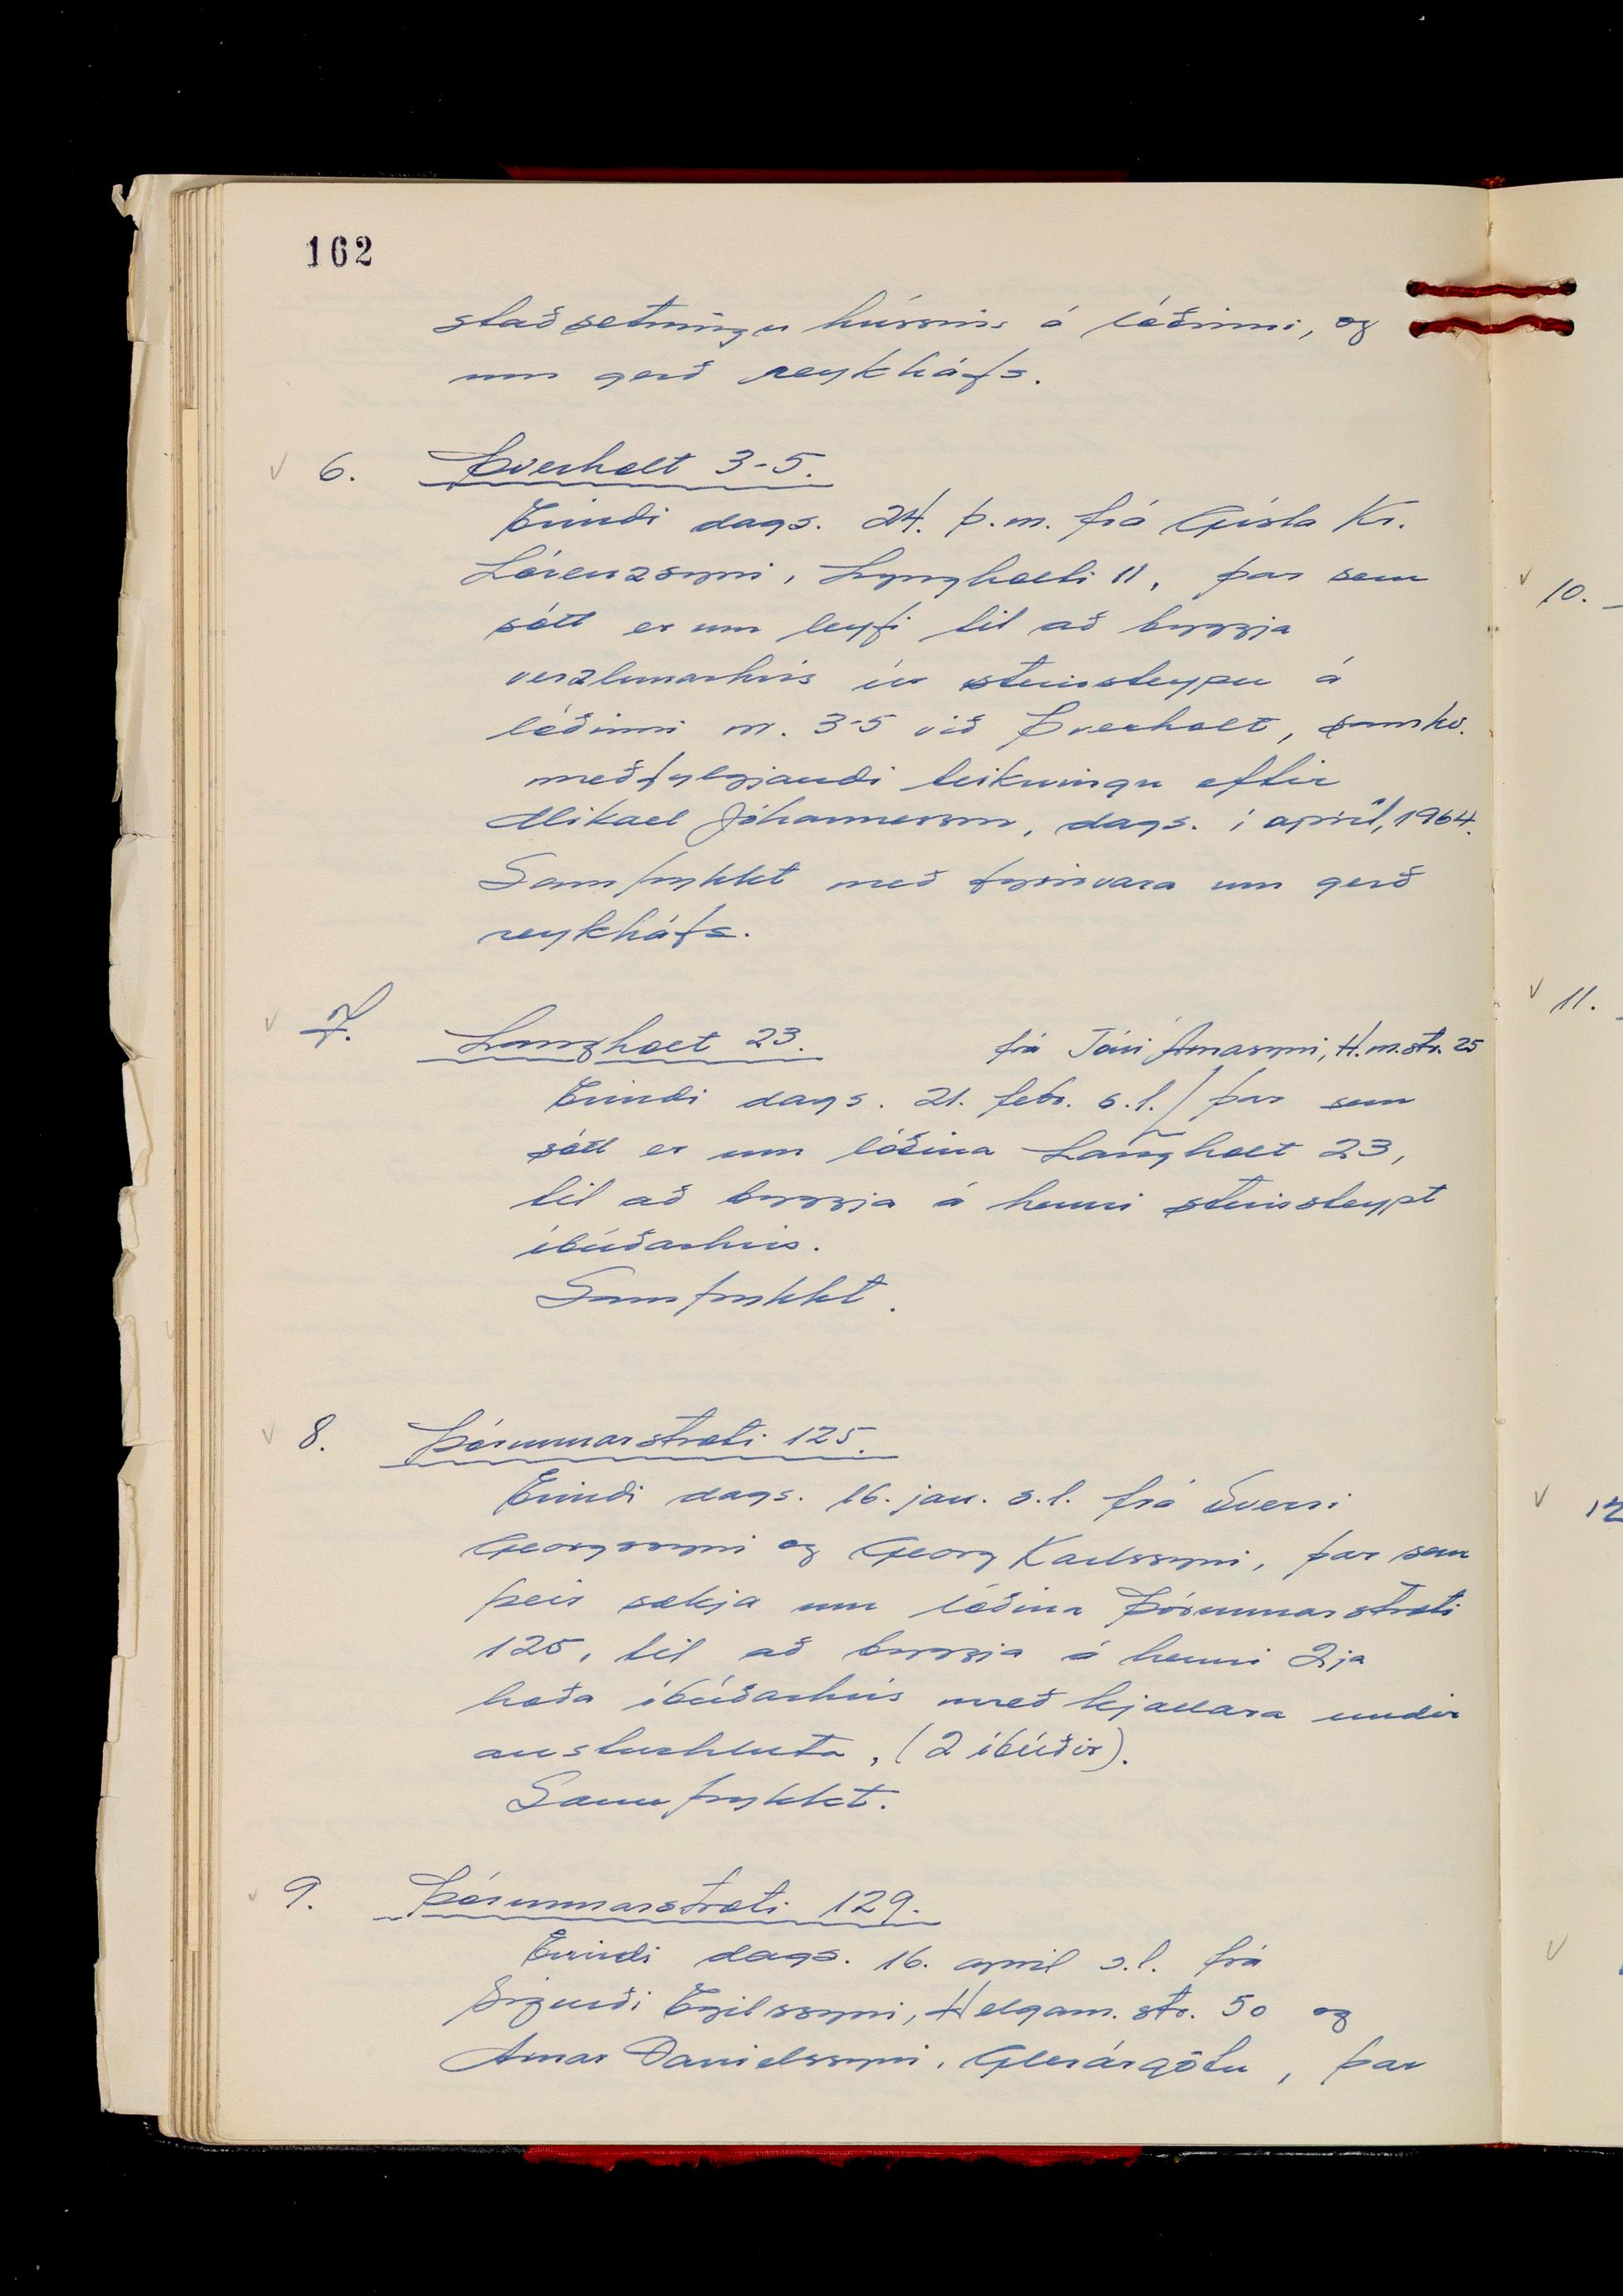 162
staðsetningu hússins á lóðinni, og
um gerð reykháfs.
6. Þverholt 3-5.
Erindi dags. 24. þ.m. frá Gísla Kr.
Lórenzsyni, Lyngholti 11, þar sem
sótt er um leyfi til að byggja
verzlunarhús úr steinsteypu á
lóðinni nr. 3-5 við Þverholt, samkv.
meðfylgjandi teikningu eftir
Mikael Jóhannesson, dags. í apríl, 1964.
Samþykkt með fyrirvara um gerð
reykháfs.
7. Langholt 23.
frá Jóni Árnasyni, H.m.str. 25
Erindi dags. 21. febr. s.l. / þar sem
sótt er um lóðina Langholt 23,
til að byggja á henni steinsteypt
íbúðarhús.
Samþykkt.
8. Þórunnarstræti 125.
Erindi dags. 16. jan. s.l. frá Sverri
Georgssyni og Georg Karlssyni, þar sem
þeir sækja um lóðina Þórunnarstræti
125, til að byggja á henni 2ja
hæða íbúðarhús með kjallara undir
austurhluta, (2 íbúðir).
Samþykkt.
9. Þórunnarstræti 129.
Erindi dags. 16. apríl s.l. frá
Sigurði Egilssyni, Helgam. str. 50 og
Arnar Daníelssyni, Glerárgötu, þar
10.
11.
12